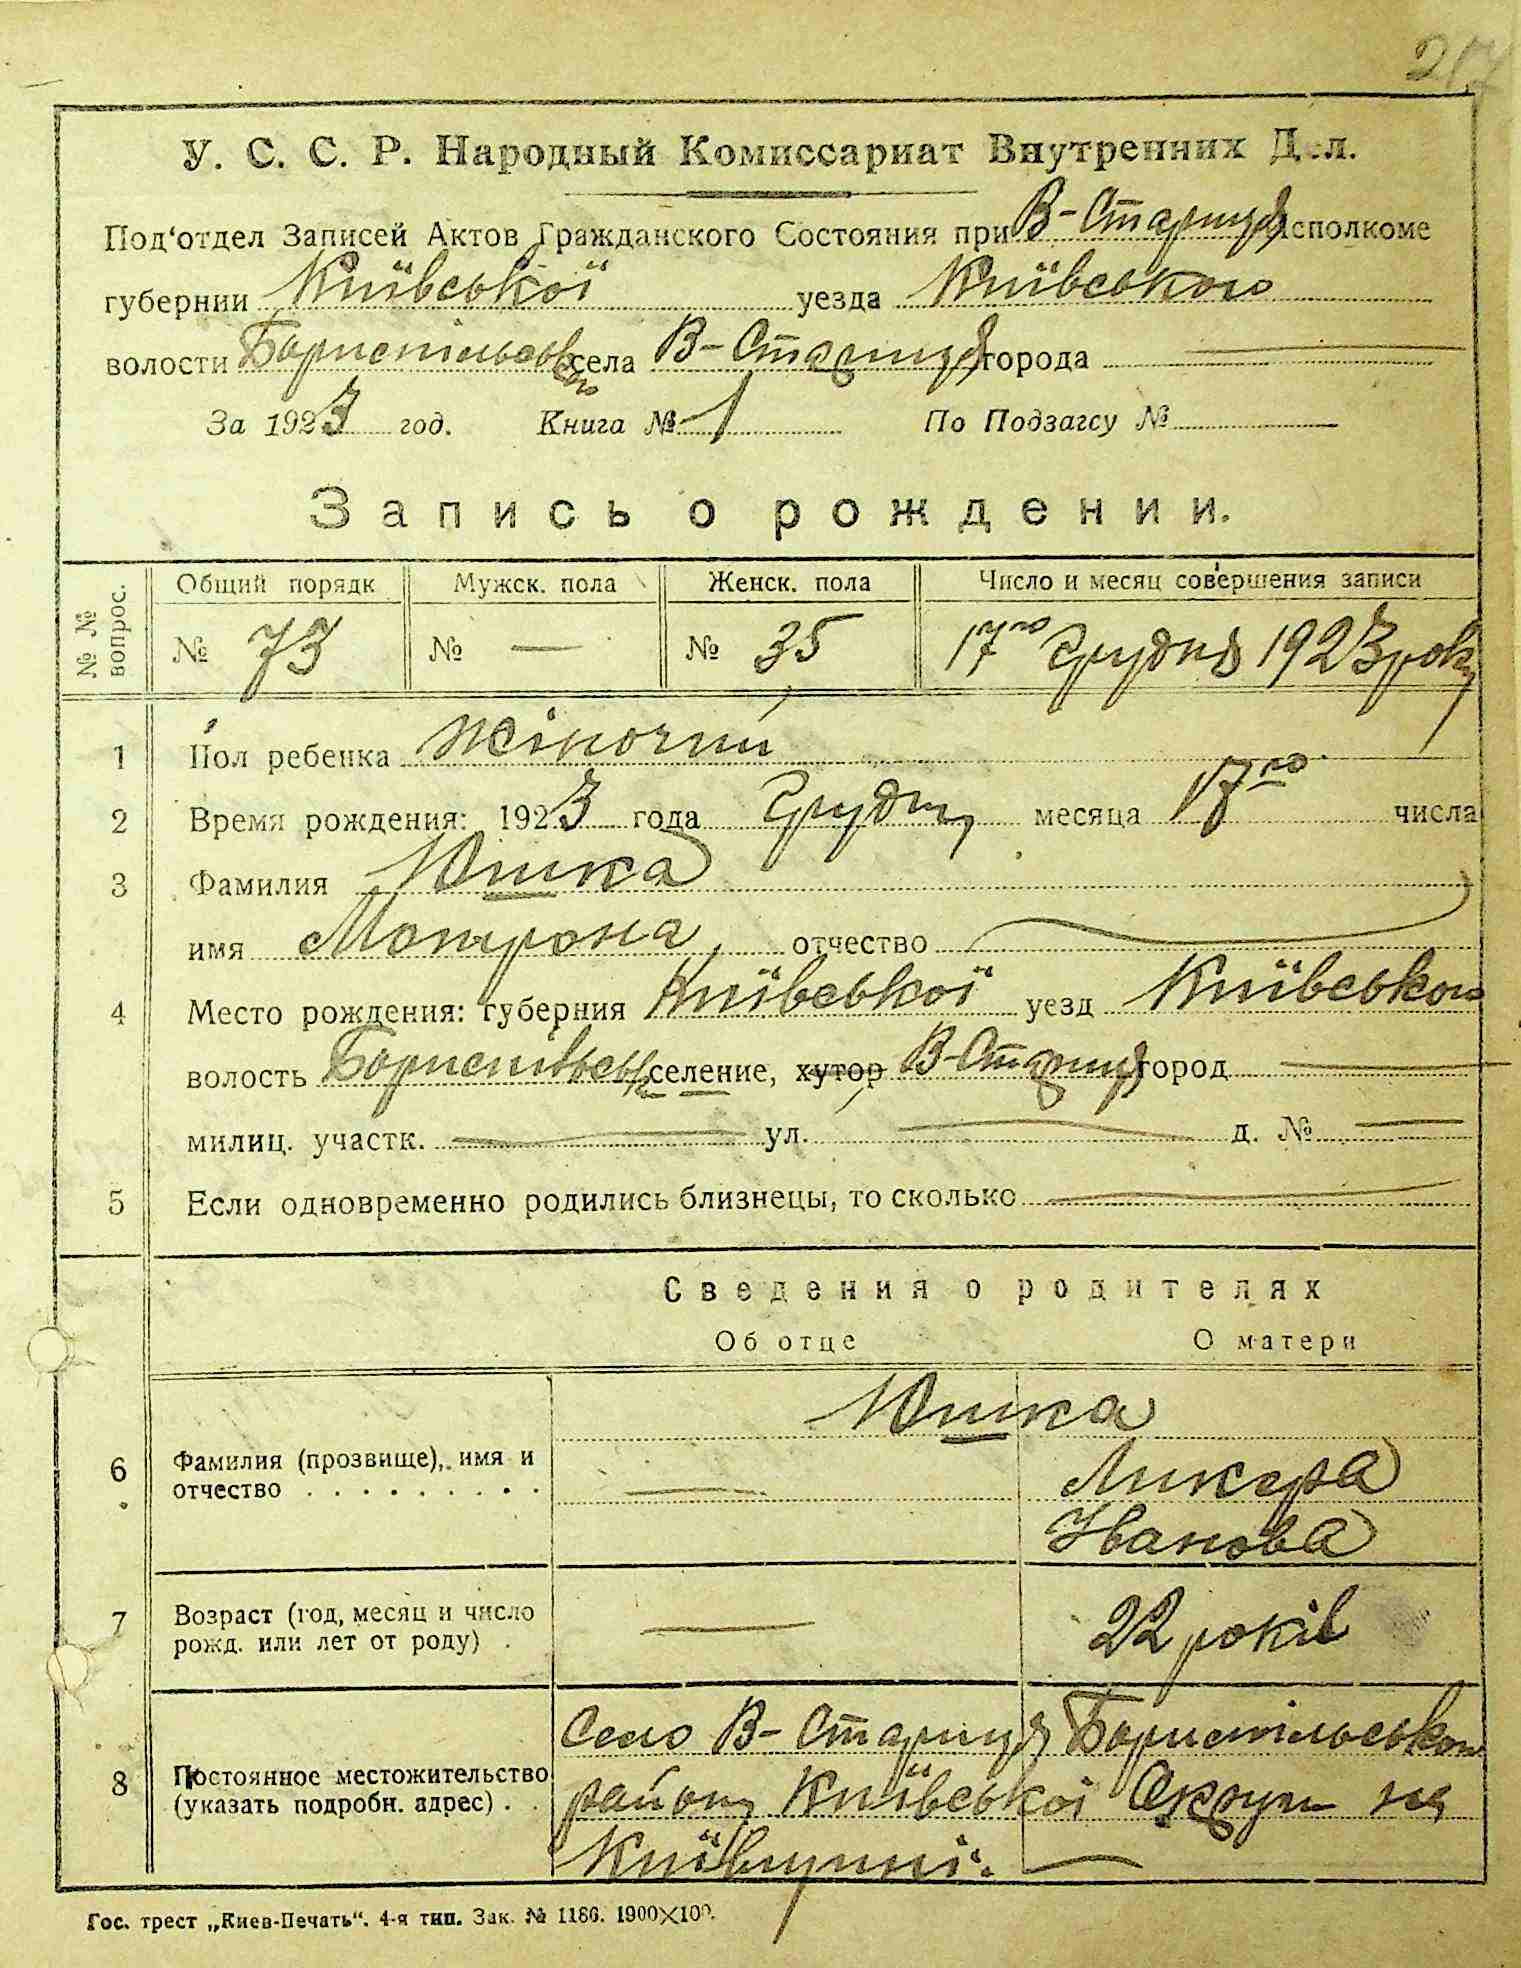 217
У. С. С. Р. Народный Комиссариат Внутренних Дел.
Под‘отдел Записей Актов Гражданского Состояния при В-Стариця Исполкоме
губернии Київської уезда Київського
волости Бориспільського села В-Стариця города —
За 1923 год. Книга № 1 По Подзагсу №
Запись о рождении.
№ № вопрос. Общий порядк Мужск. пола Женск. пола Число и месяц совершения записи
№ 73 № — № 35 17го Грудня 1923 року
1 Пол ребенка жіночий
2 Время рождения: 1923 года Грудня месяца 17го числа
3 Фамилия Юшка
имя Мотрона отчество —
4 Место рождения: губерния Київської уезд Київського
волость Бориспільськ селение, хутор В-Стариця город —
милиц. участк. — ул. — д. № —
5 Если одновременно родились близнецы, то сколько —
Сведения о родителях
Об отце О матери
Юшка
6 Фамилия (прозвище), имя и отчество — Ликера
Иванова
7 Возраст (год, месяц и число рожд. или лет от роду) . — 22 років
8 Постоянное местожительство (указать подробн. адрес) . . Село В-Стариця Бориспільського
району Київської Округи на
Київщині. —
Гос. трест „Киев-Печать“. 4-я тип. Зак. № 1186. 1900×100.